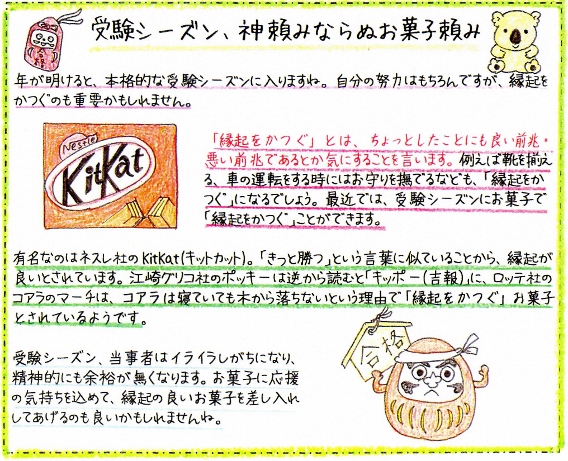 合格
受験シーズン、神頼みならぬお菓子頼み
年が明けると、本格的な受験シーズンに入りますね。自分の努力はもちろんですが、縁起を
かつぐのも重要かもしれません。
Nestle
KitKat
「縁起をかつぐ」とは、ちょっとしたことにも良い前兆・
悪い前兆であるとか気にすることを言います。例えば靴を揃え
る、車の運転をする時にはお守りを撫でるなども、「縁起をか
つぐ」になるでしょう。最近では、受験シーズンにお菓子で
「縁起をかつぐ」ことができます。
有名なのはネスレ社のKitKat(キットカット)。「きっと勝つ」という言葉に似ていることから、縁起が
良いとされています。江崎グリコ社のポッキーは逆から読むと「キッポー(吉報)」に、ロッテ社の
コアラのマーチは、コアラは寝ていても木から落ちないという理由で「縁起をかつぐ」お菓子
とされているようです。
受験シーズン、当事者はイライラしがちになり、
精神的にも余裕が無くなります。お菓子に応援
の気持ちを込めて、縁起の良いお菓子を差し入れ
してあげるのも良いかもしれませんね。
合格